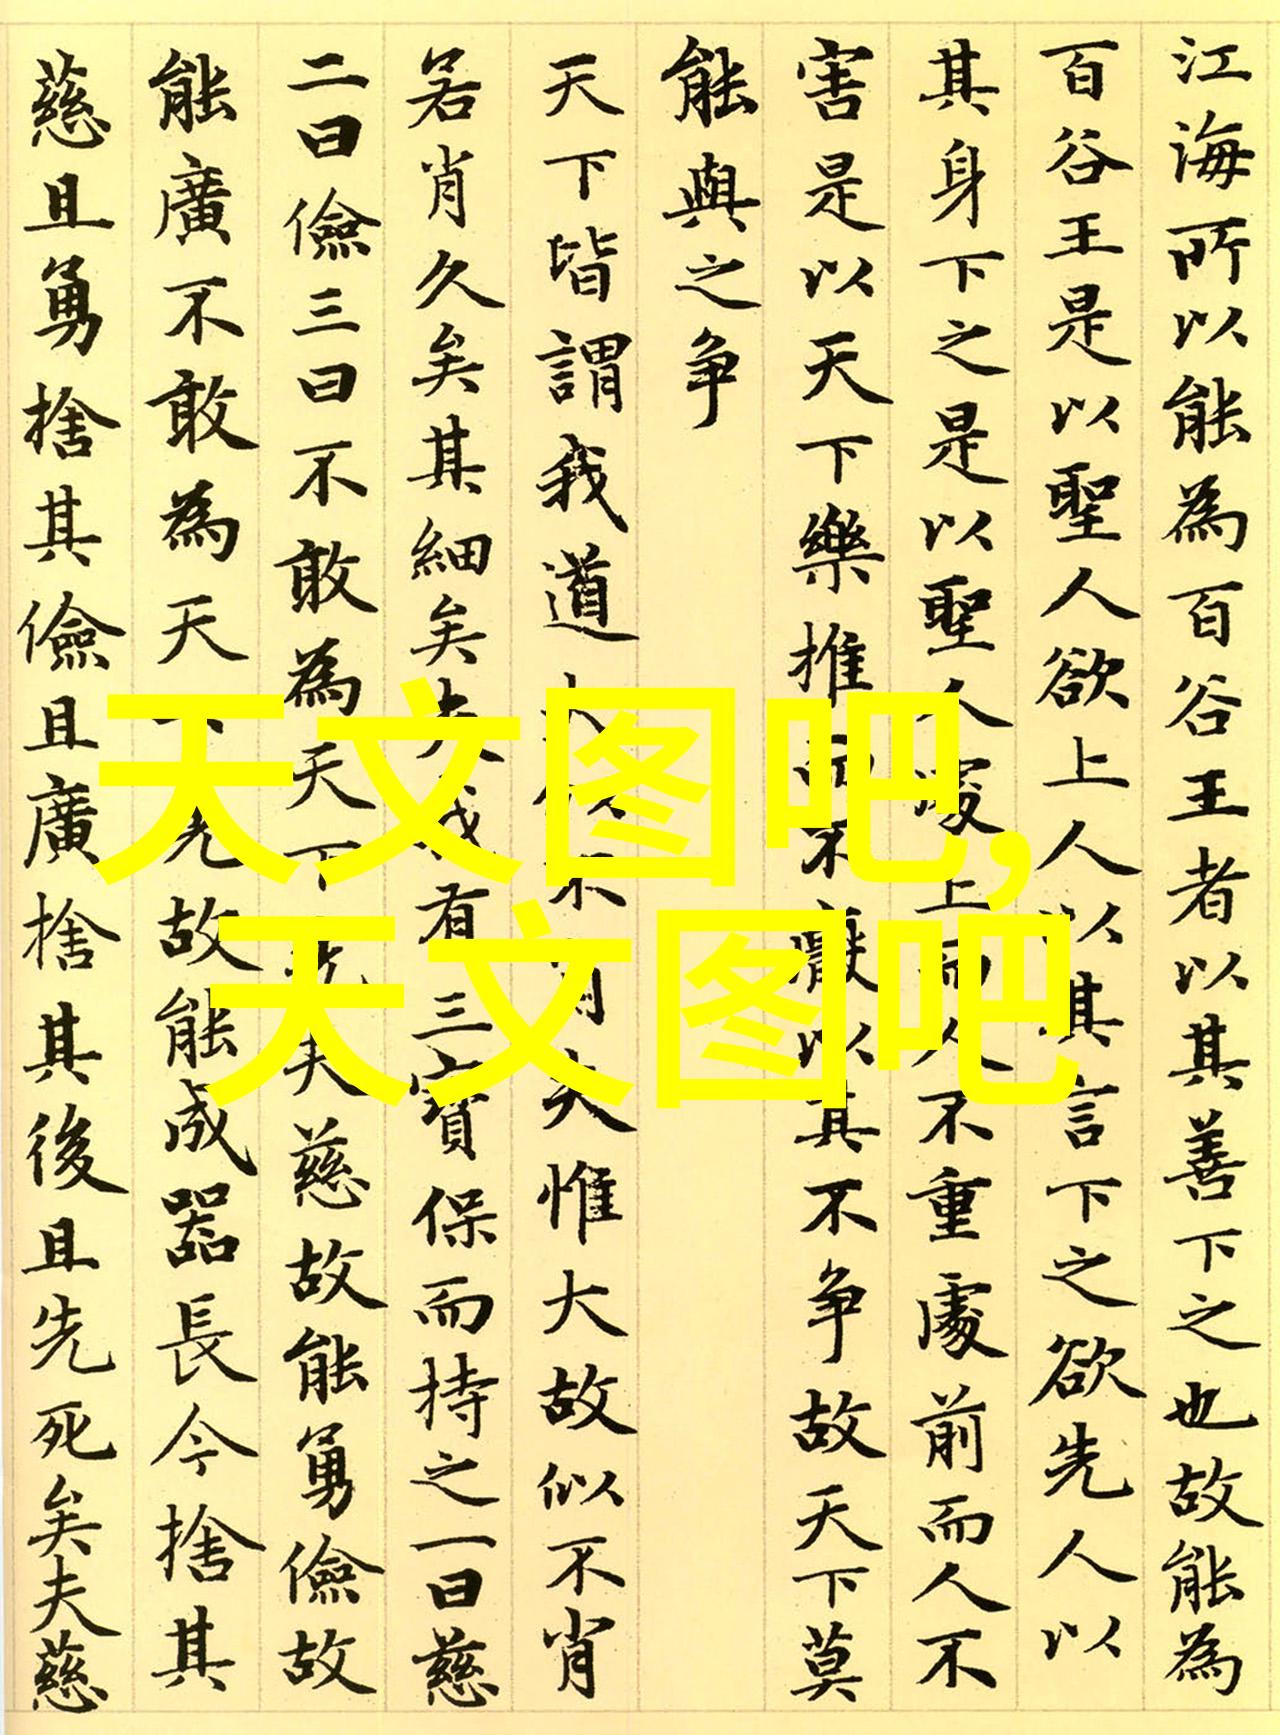 江海所以能為百谷王者以其善下之也故能為
百谷王是以聖人欲上人以其言下之欲先人以
其身下之是以聖人處上而人不重處前而人不
害是以天下樂推而不厭以其不争故天下莫
能與之争
天下皆謂我道大似不肖夫惟大故似不肖
若肖久矣其細矣夫我有三寶保而持之一曰慈
二曰儉三曰不敢為天下先夫慈故能勇儉故
能廣不敢為天下先故能成器長今捨其
慈且勇捨其儉且廣捨其後且先死矣夫慈
天文图吧,
天文图吧